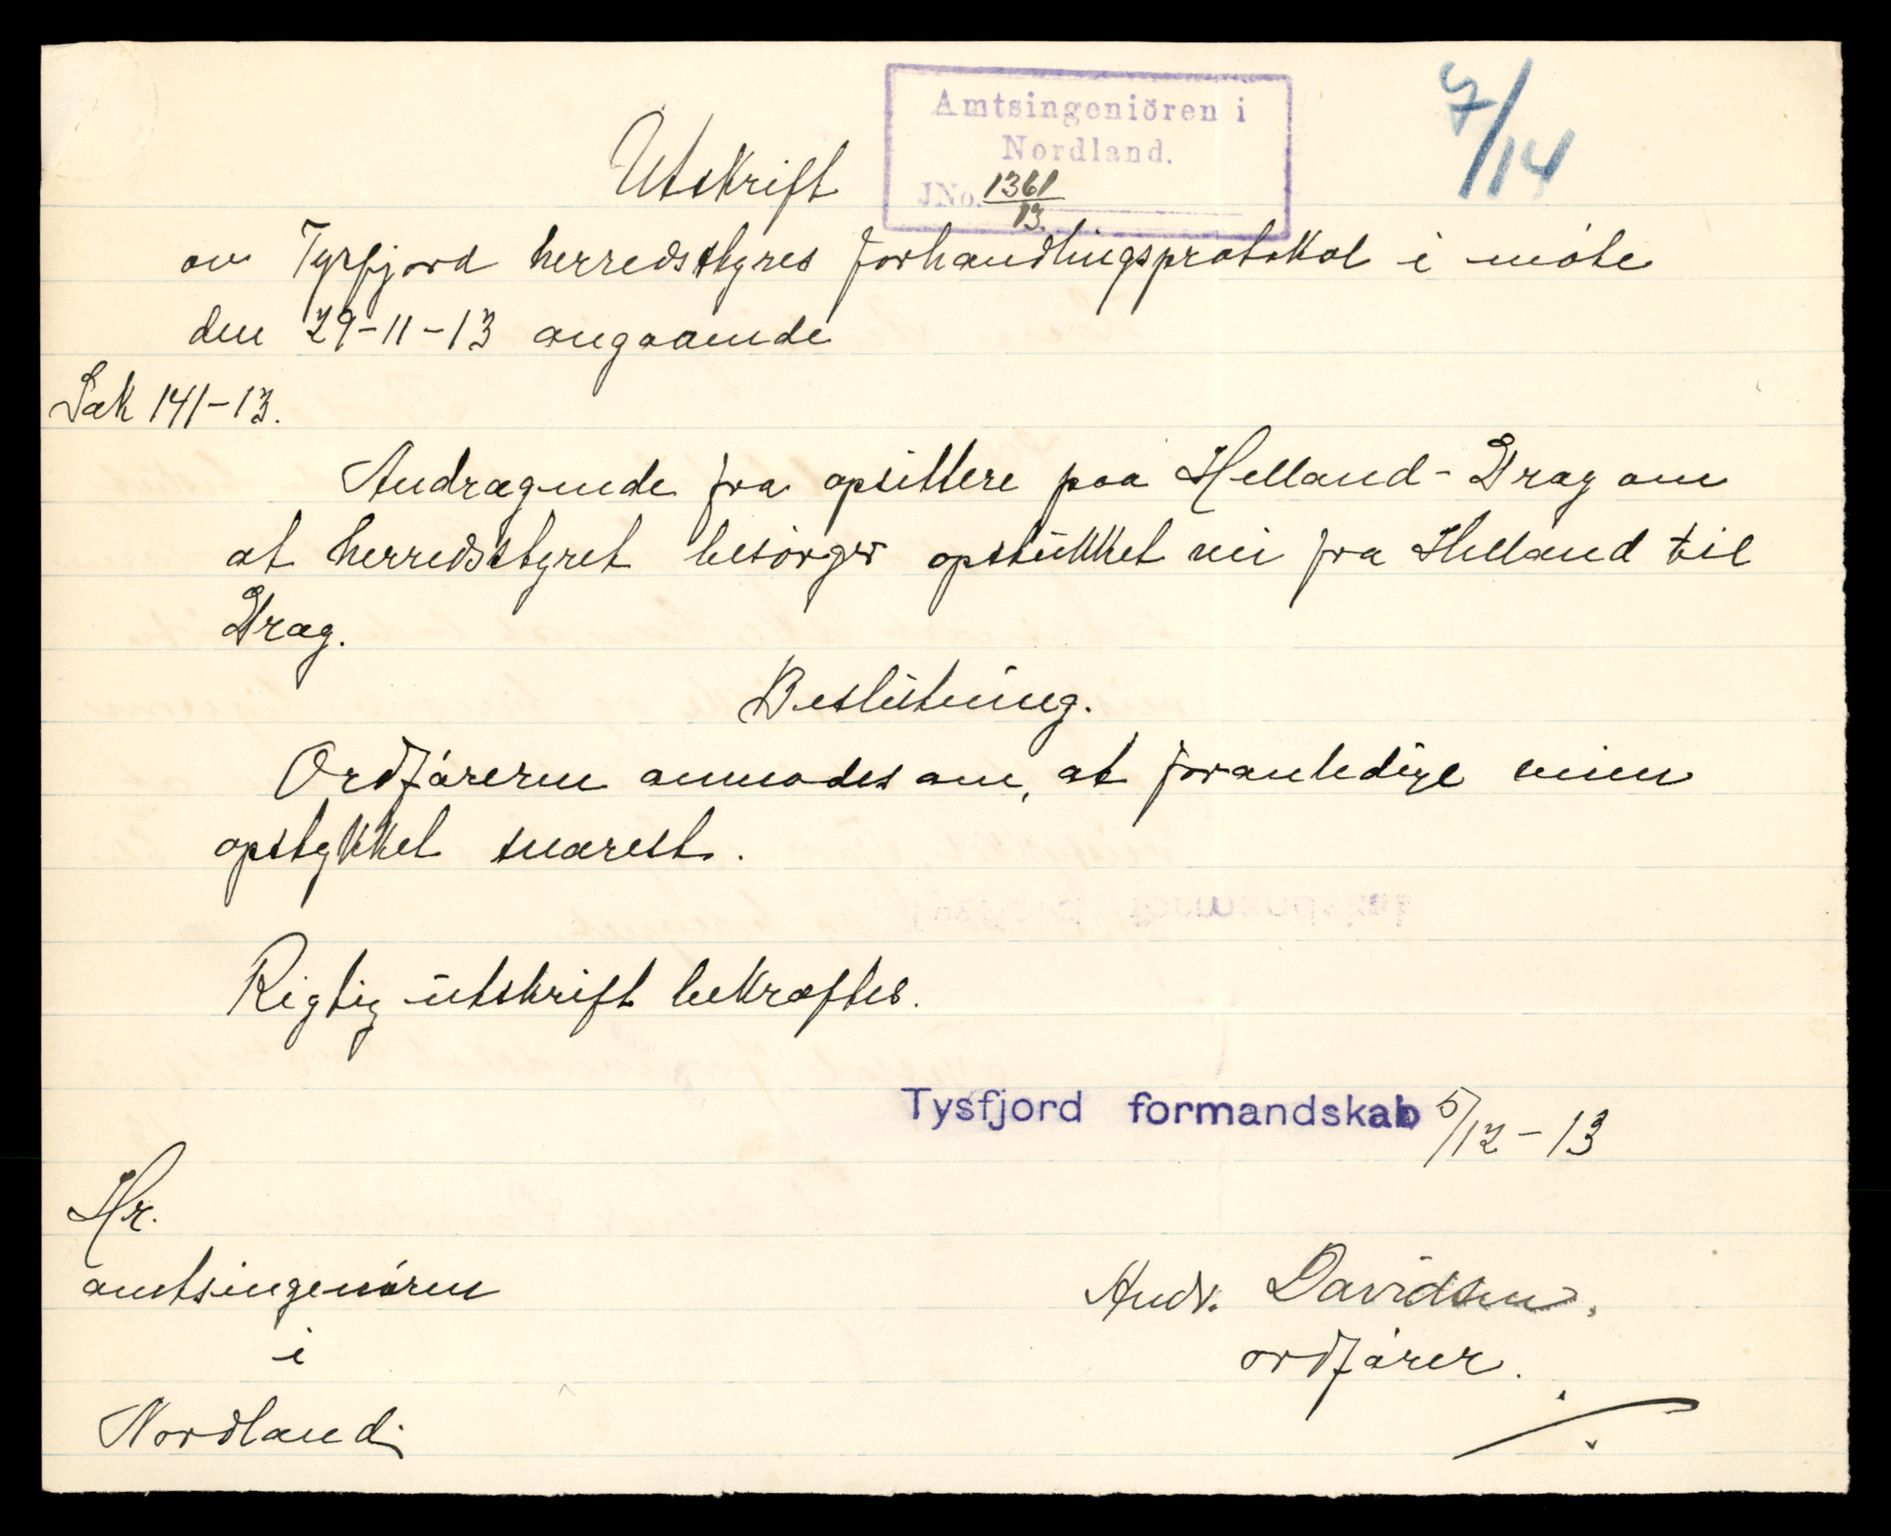 Amtsingeniören i
Nordland.
JNo. 1361/13.
7/14
Utskrift
av Tysfjord herredsstyres forhandlingsprotokol i møte
den 29-11-13 angaaende
Sak 141-13.
Andragende fra opsittere paa Helland-Drag om
at herredsstyret besørger opstukket vei fra Helland til
Drag.
Beslutning.
Ordføreren anmodes om, at foranledige veien
opstykket snarest.
Rigtig utskrift bekræftes.
Tysfjord formandskab 5/12-13
Hr.
amtsingeniøren
i
Nordland.
Andr. Davidsen.
ordfører.